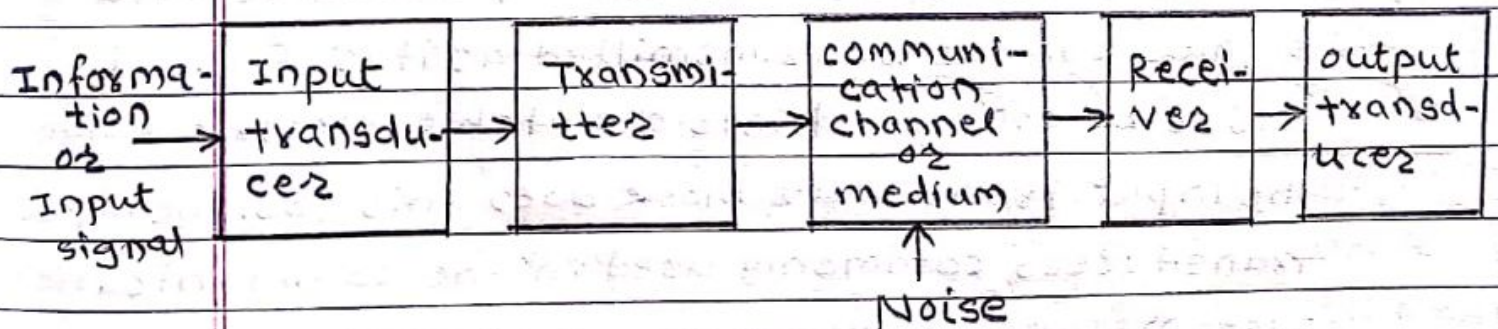 Informa-
tion
or
Input
signal
Input
transdu-
cer
Transmi-
tter
communi-
cation
channel
or
medium
Recei-
ver
output
transd-
ucer
Noise